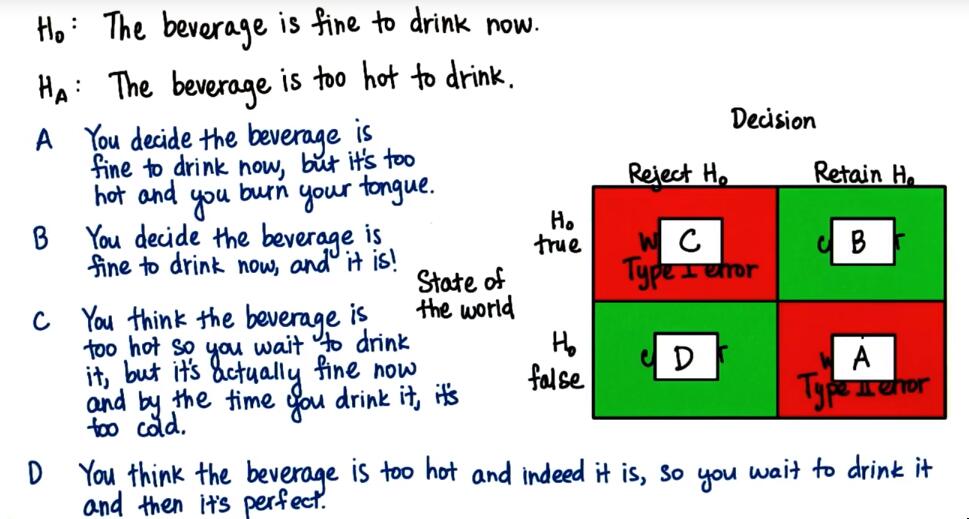 H₀: The beverage is fine to drink now.
H_A: The beverage is too hot to drink.
A You decide the beverage is
fine to drink now, but it's too
hot and you burn your tongue.
B You decide the beverage is
fine to drink now, and it is!
C You think the beverage is
too hot so you wait to drink
it, but it's actually fine now
and by the time you drink it, it's
too cold.
D You think the beverage is too hot and indeed it is, so you wait to drink it
and then it's perfect.
Decision
Reject H₀ Retain H₀
State of
the world
H₀
true
C
Type I error
B
H₀
false
D
A
Type II error